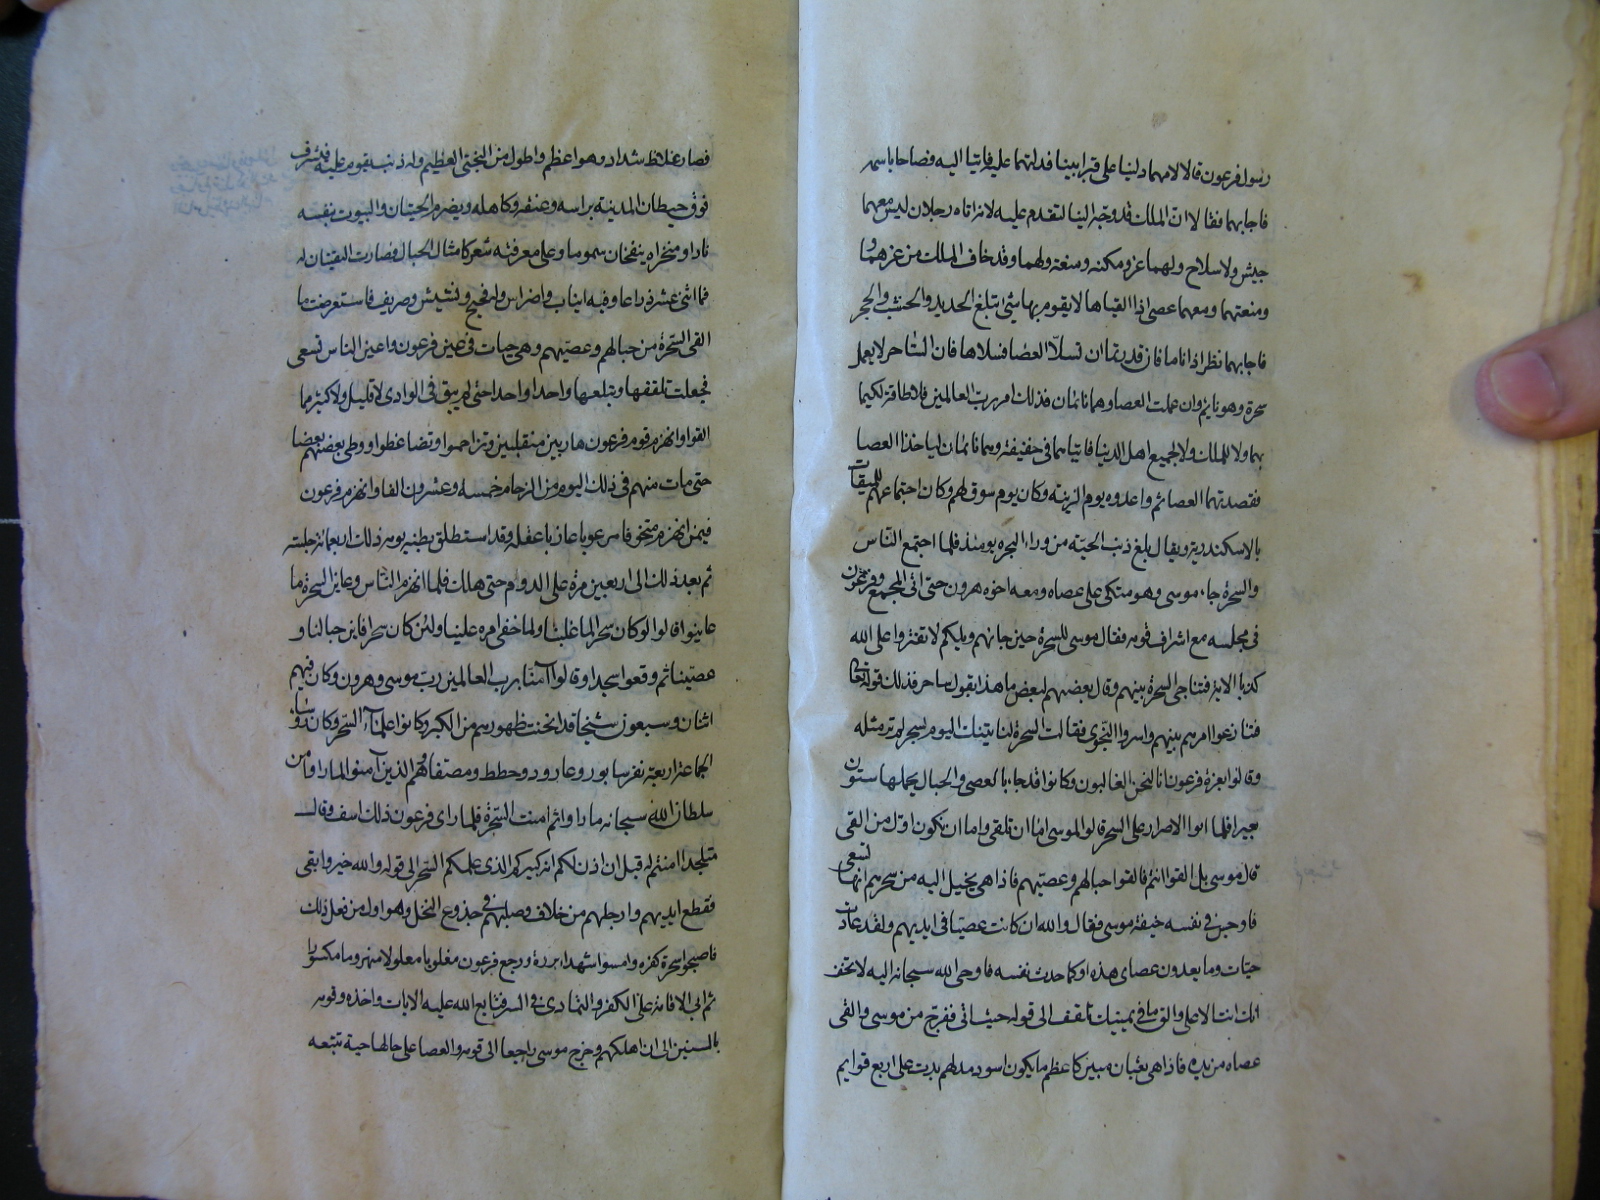 رسول فرعون قالا لامهما دلينا على قبر ابينا فدلتهما عليه فاتيا اليه فصاحا باسمه
فاجابهما فقالا ان الملك قد وجه الينا لنقدم عليه لانه اتاه رجلان ليس معهما
جيش ولا سلاح ولهما عز ومكنه ومنعة ولهما وقد خاف الملك من عزهما و
ومنعتهما ومعهما عصى اذا القياها لا يقوم بها شئ تبلغ الحديد والخشب والحجر
فاجابهما نظرا اذا ناما فان قدرتما ان تسلا العصا فسلاها فان الساحر لا يعمل
سحره وهو نايم وان عملت العصا وهما نائمان فذلك امر رب العالمين فلا طاقة لكما
بها ولا للملك ولا لجميع اهل الدنيا فاتياهما في خفيفة وهما نائمان لياخذا العصا
فقصدتهما العصا ثم واعدوه يوم الزينة وكان يوم سوق لهم وكان اجتماعهم للميقات
بالاسكندرية ويقال بلغ ذنب الحية من وراء البحره يومئذ فلما اجتمع الناس
والسحرة جاء موسى وهو متكى على عصاه ومعه اخوه هرون حتى اتى المجمع وفرعون
في مجلسه مع اشراف قومه فقال موسى للسحرة حين جائهم ويلكم لا تفتروا على الله
كذبا الاية فتناجى السحرة بينهم وقال بعضهم لبعض ما هذا بقول ساحر فذلك قوله تعالى
فتنازعوا امرهم بينهم واسروا النجوى فقالت السحرة لناتينك اليوم بسحر لم تر مثله
وقالوا بعزة فرعون انا لنحن الغالبون وكانوا قد جاء بالعصى والحبال يحملها ستون
بعيرا فلما ابوا الا الاصرار على السحر قالوا لموسى اما ان تلقى واما ان نكون اول من القى
قال موسى بل القوا انتم فالقوا حبالهم وعصيهم فاذا هى يخيل اليه من سحرهم انها تسعى
فاوجس في نفسه خيفة موسى فقال والله ان كانت عصيا في ايديهم ولقد عادت
حيات وما يعدون عصاى هذه او كما حدث نفسه فاوحى الله سبحانه اليه لا تخف
انك انت الاعلى والق ما في يمينك تلقف الى قوله حيث اتى ففرج من موسى والقى
عصاه من يده فاذا هى ثعبان مبين كاعظم ما يكون اسود مدلهم يدب على اربع قوايم
فصار غلاظ شداد وهو اعظم واطول من البختى العظيم وله ذنب يقوم عليه فيشرف
فوق حيطان المدينة براسه وعنقه وكاهله ويضرم الحيتان والبيوت بنفسه
نارا ومنخراه ينفخان سموما وعلى معرفته شعر كامثال الحبال وصارت الشعبتان له
فما اثنى عشر ذراعا وفيه انياب واضراس وله فحيح ونشيش وصريف فاستعرضت ما
القى السحرة من حبالهم وعصيهم وهى حيات في عين فرعون واعين الناس تسعى
فجعلت تلقفها وتبتلعها واحدا واحدا حتى لم يبق في الوادى لا قليل ولا كثير مما
القوا وانهزم قوم فرعون هاربين منقلبين وتزاحموا وتضاغطوا ووطى بعضهم بعضا
حتى مات منهم في ذلك اليوم من الزحام خمسه وعشرون الفا وانهزم فرعون
فيمن انهزم متخوفا مرعوبا عازبا عقله وقد استطلق بطنه يومه ذلك اربعمائة جلسته
ثم بعد ذلك الى اربعين مرة على الدوام حتى هلك فلما انهزم الناس وعاين السحرة ما
عاينوا قالوا لو كان سحرا لما غلبنا ولما خفى امره علينا ولئن كان سحرا فاين حبالنا و
عصينا ثم وقعوا سجدا وقالوا آمنا برب العالمين رب موسى وهرون وكان فيهم
اثنان وسبعون شيخا قد انحنت ظهورهم من الكبر وكانوا علماء السحر وكان رؤساء
الجماعة اربعة نفر سابور وعارور وحطط ومصفا وهم الذين آمنوا لما راوا من
سلطان الله سبحانه ما راوا ثم امنت السحرة فلما راى فرعون ذلك اسف وقال
متجلدا امنتم له قبل ان اذن لكم انه كبيركم الذى علمكم السحر الى قوله والله خير وابقى
فقطع ايديهم وارجلهم من خلاف وصلبهم في جذوع النخل وهو اول من فعل ذلك
فاصبحوا سحرة كفره وامسوا شهداء بررة ورجع فرعون مغلوبا معلولا منهزما مكسورا
ثم ابى الا اقامة على الكفر والتمادى في الشر فتابع الله عليه الايات واخذه وقومه
بالسنين الى ان اهلكهم وخرج موسى راجعا الى قومه والعصا على حالها حية تتبعه